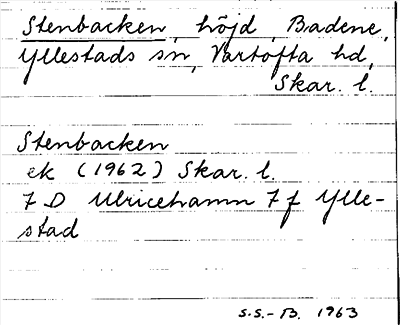 Stenbacken, höjd, Badene,
Yllestads sn, Vartofta hd,
Skar. l.
Stenbacken
ek (1962) Skar. l.
7 D Ulricehamn 7 f Ylle-
stad
S.S.-B. 1963